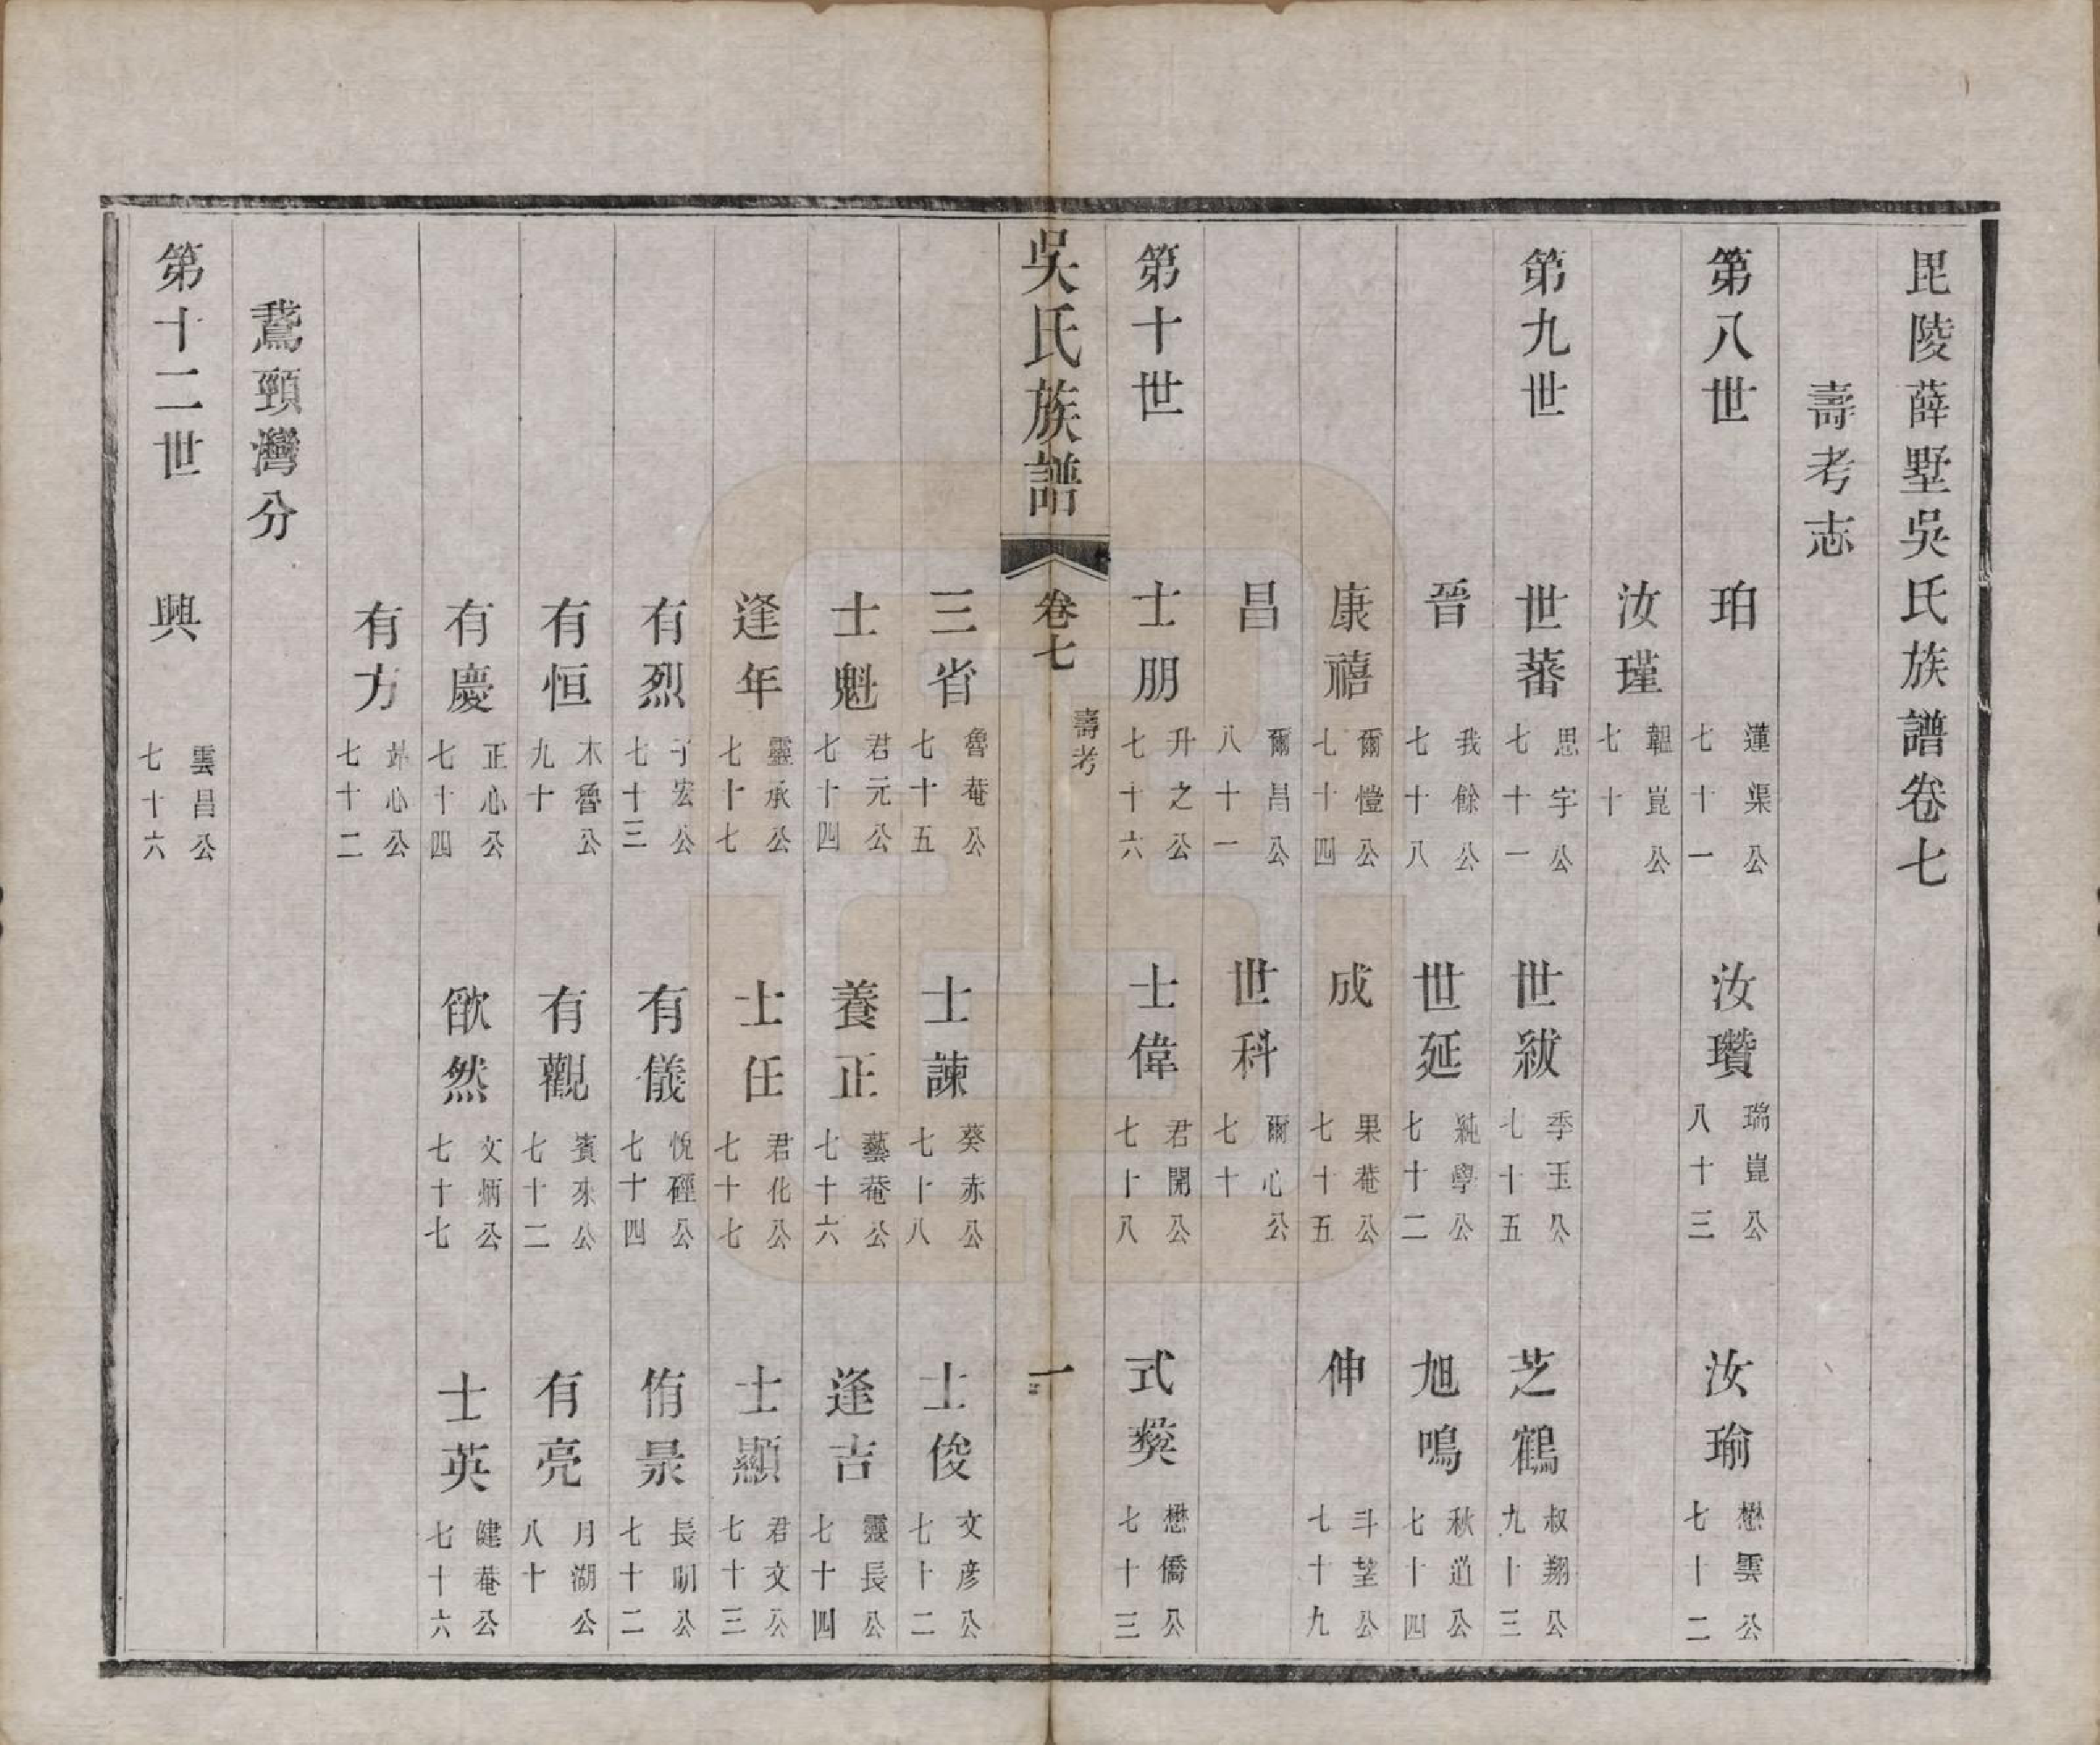 毘陵薛墅吳氏族譜卷七
壽考志
第八世 珀 蓮渠公 七十一 汝瓚 瑞崑公 八十三 汝瑜 懋雲公 七十二
汝瑾 韞崑公 七十
第九世 世蕃 思宇公 七十一 世紱 季玉公 七十五 芝鶴 叔翔公 九十三
晉 我餘公 七十八 世延 純學公 七十二 旭鳴 秋道公 七十四
康禧 爾愷公 七十四 成 果菴公 七十五 伸 斗望公 七十九
昌 爾昌公 八十一 世科 爾心公 七十
第十世 士朋 升之公 七十六 士偉 君開公 七十八 式獎 懋僑公 七十三
吳氏族譜 卷七 壽考 一
三省 魯菴公 七十五 士諫 葵赤公 七十八 士俊 文彥公 七十二
士魁 君元公 七十四 養正 藝菴公 七十六 逢吉 靈長公 七十四
逢年 靈承公 七十七 士任 君化公 七十七 士顯 君文公 七十三
有烈 子宏公 七十三 有儀 悅硜公 七十四 侑景 長明公 七十二
有恒 木魯公 九十 有觀 賓來公 七十二 有亮 月湖公 八十
有慶 正心公 七十四 欿然 文炳公 七十七 士英 健菴公 七十六
有方 心公 七十二
鵞頸灣分
第十二世 興 雲昌公 七十六